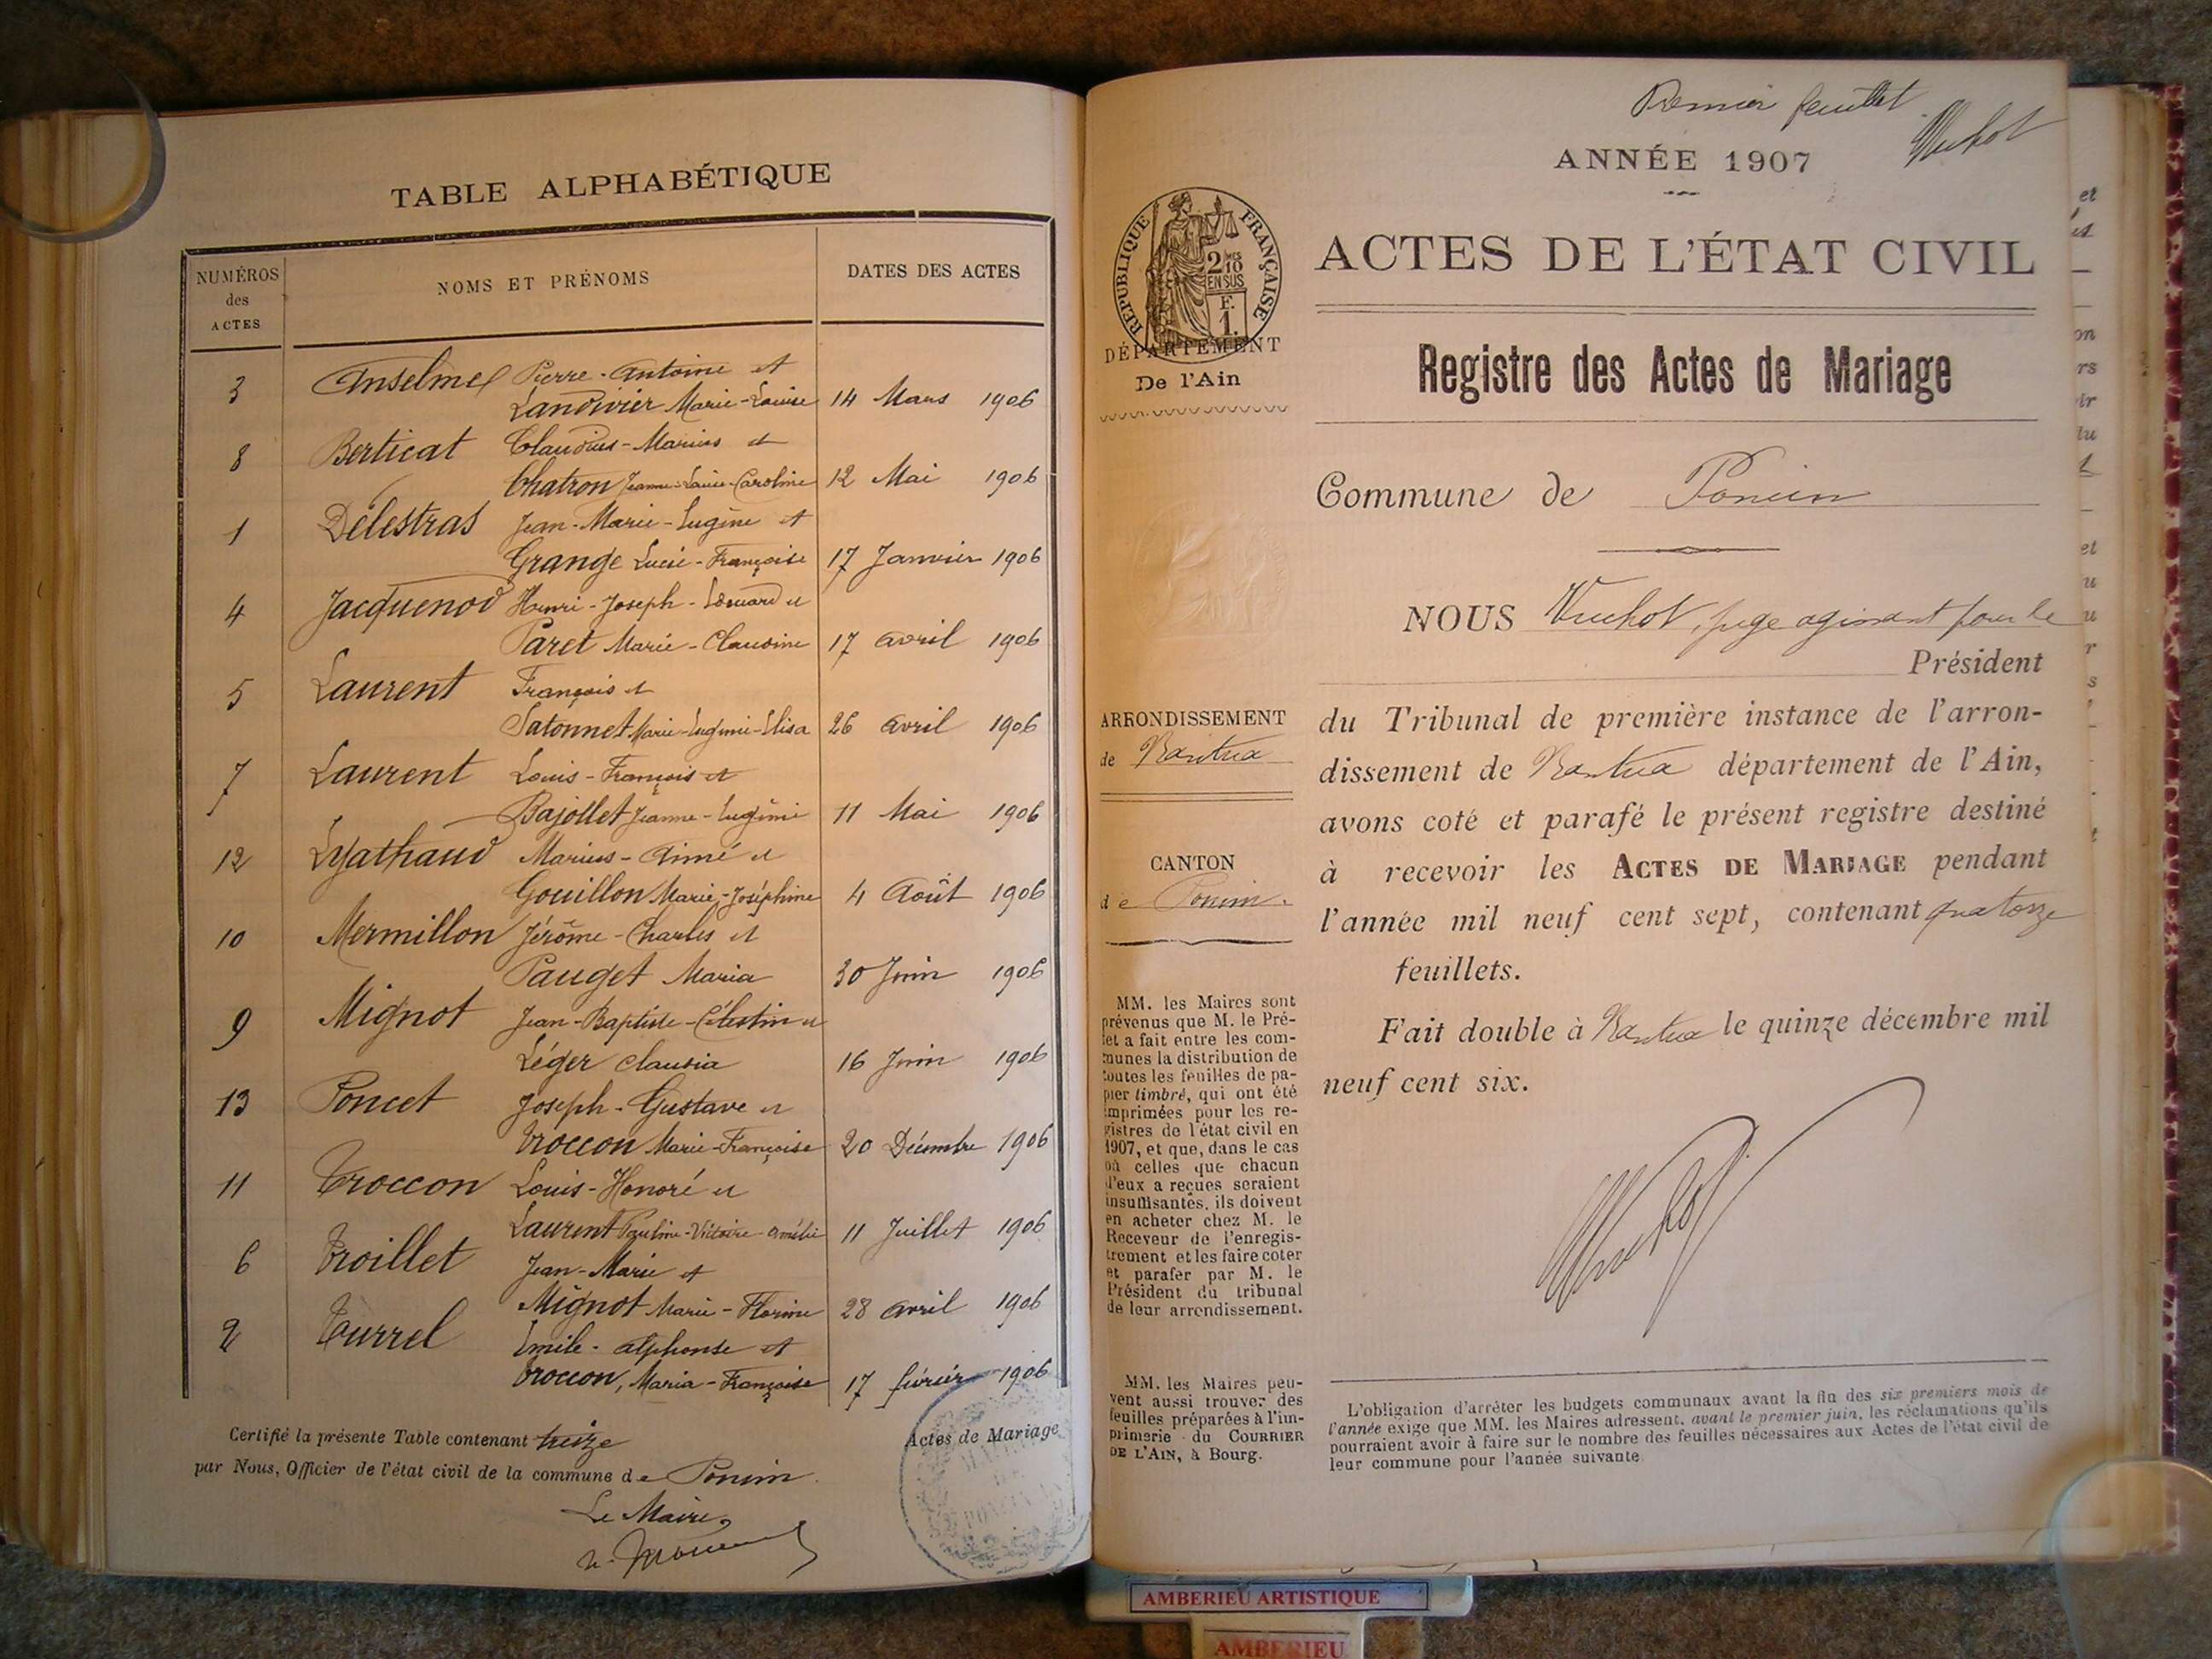 TABLE ALPHABÉTIQUE
NUMÉROS des ACTES NOMS ET PRÉNOMS DATES DES ACTES
3 Anselme Pierre-Antoine et
Landivier Marie-Louise 14 Mars 1906
8 Berticat Claudius-Marius et
Chatron Jeanne-Louise-Caroline 12 Mai 1906
1 Délestras Jean-Marie-Eugène et
Grange Lucie-Françoise 17 Janvier 1906
4 Jacquenod Henri-Joseph-Edouard et
Paret Marie-Claudine 17 avril 1906
5 Laurent François et
Satonnet Marie-Eugénie-Elisa 26 avril 1906
7 Laurent Louis-François et
Bajollet Jeanne-Eugénie 11 Mai 1906
12 Lyathaud Marius-Aimé et
Gouillon Marie-Joséphine 4 Août 1906
10 Mermillon Jérôme-Charles et
Pauget Maria 30 Juin 1906
9 Mignot Jean-Baptiste-Célestin et
Léger Claudia 16 Juin 1906
13 Poncet Joseph-Gustave et
Troccon Marie-Françoise 20 Décembre 1906
11 Troccon Louis-Honoré et
Laurent Pauline-Victoire-Amélie 11 Juillet 1906
6 Troillet Jean-Marie et
Mignot Marie-Florine 28 avril 1906
2 Turrel Emile-Alphonse et
Troccon, Maria-Françoise 17 février 1906
Certifié la présente Table contenant treize Actes de Mariage
par Nous, Officier de l'état civil de la commune de Poncin.
Le Maire,
Premier feuillet
Vuchot
ANNÉE 1907
RÉPUBLIQUE FRANÇAISE
2 10
EN SUS
F.
1.
DÉPARTEMENT
De l'Ain
ACTES DE L'ÉTAT CIVIL
Registre des Actes de Mariage
Commune de Poncin
NOUS Vuchot, juge agissant pour le
Président
du Tribunal de première instance de l'arron-
dissement de Nantua département de l'Ain,
avons coté et parafé le présent registre destiné
à recevoir les ACTES DE MARIAGE pendant
l'année mil neuf cent sept, contenant quatorze
feuillets.
Fait double à Nantua le quinze décembre mil
neuf cent six.
Vuchot
ARRONDISSEMENT
de Nantua
CANTON
de Poncin.
MM. les Maires sont
prévenus que M. le Pré-
fet a fait entre les com-
munes la distribution de
toutes les feuilles de pa-
pier timbré, qui ont été
imprimées pour les re-
gistres de l'état civil en
1907, et que, dans le cas
où celles que chacun
d'eux a reçues seraient
insuffisantes, ils doivent
en acheter chez M. le
Receveur de l'enregis-
trement et les faire coter
et parafer par M. le
Président du tribunal
de leur arrondissement.
MM. les Maires peu-
vent aussi trouver des
feuilles préparées à l'im-
primerie du COURRIER
DE L'AIN, à Bourg.
L'obligation d'arrêter les budgets communaux avant la fin des six premiers mois de
l'année exige que MM. les Maires adressent, avant le premier juin, les réclamations qu'ils
pourraient avoir à faire sur le nombre des feuilles nécessaires aux Actes de l'état civil de
leur commune pour l'année suivante.
AMBERIEU ARTISTIQUE
AMBERIEU